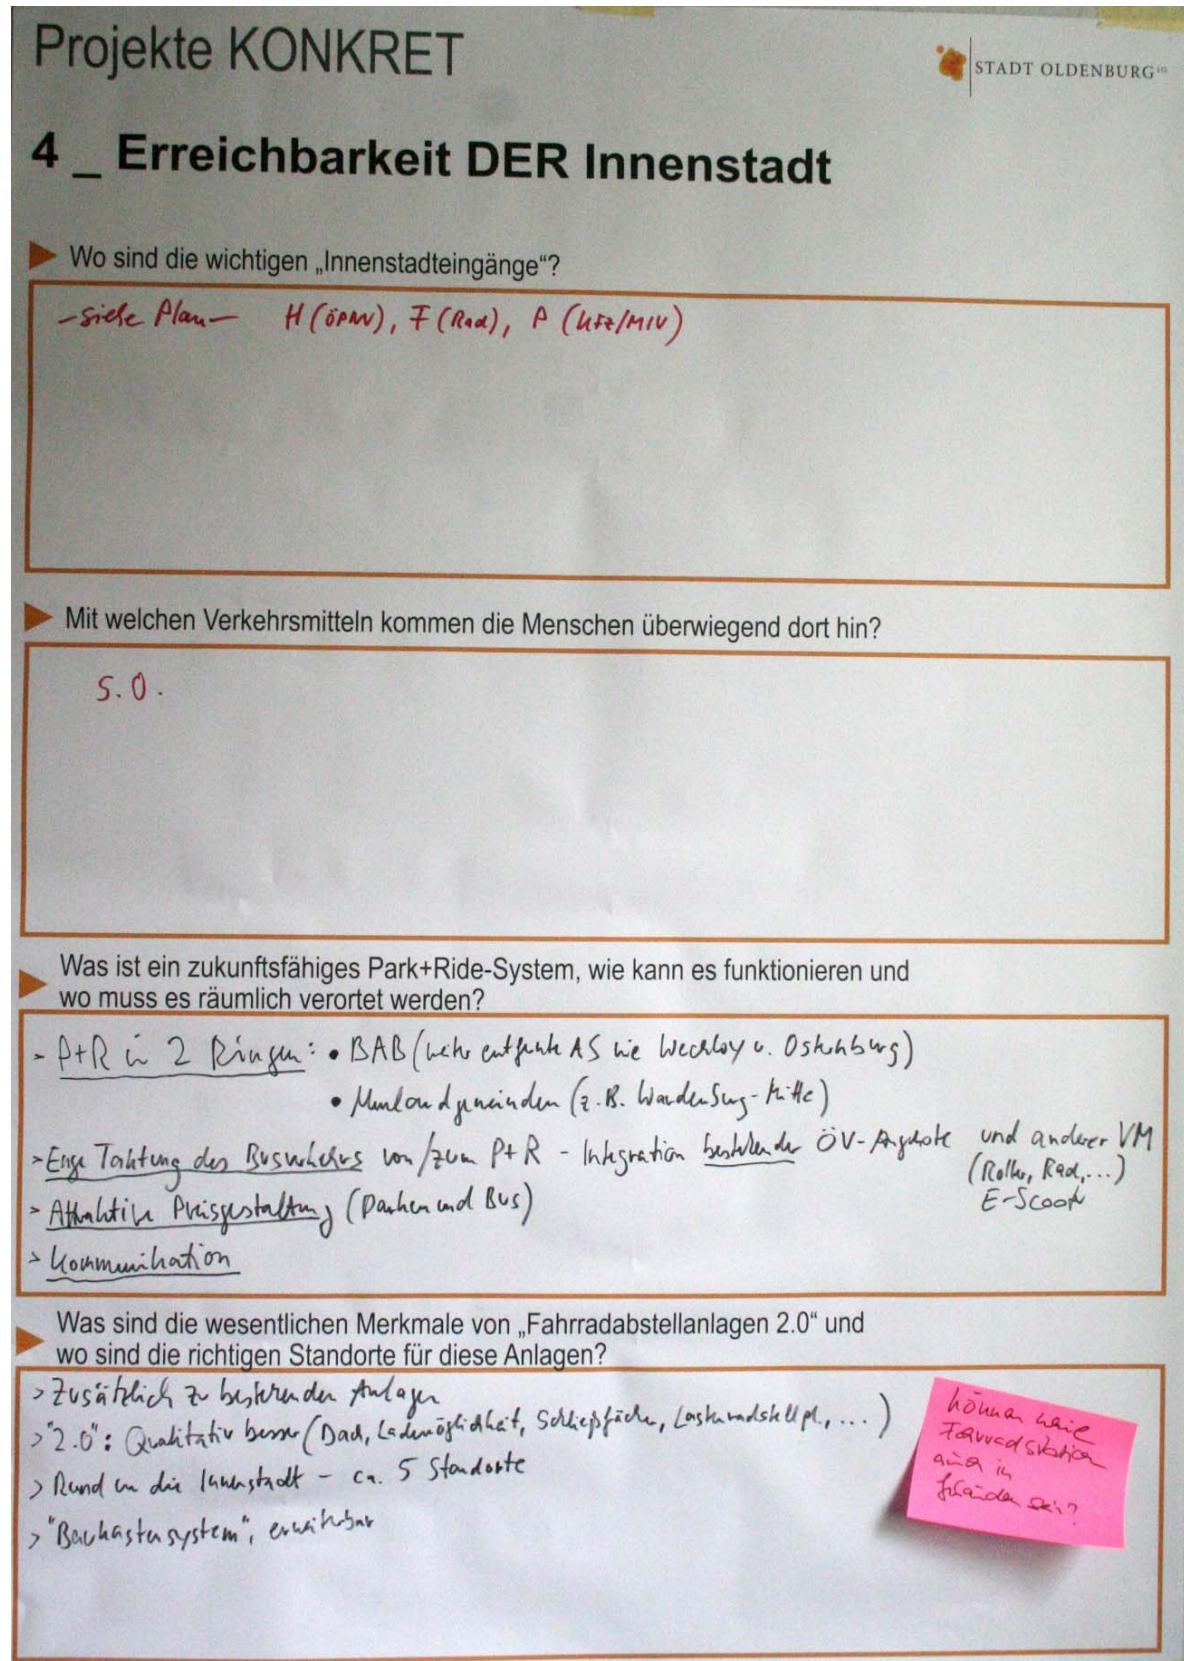 Projekte KONKRET
STADT OLDENBURG i.O.
4 _ Erreichbarkeit DER Innenstadt
Wo sind die wichtigen „Innenstadteingänge“?
- siehe Plan - H (ÖPNV), F (Rad), P (Kfz/MIV)
Mit welchen Verkehrsmitteln kommen die Menschen überwiegend dort hin?
S. O.
Was ist ein zukunftsfähiges Park+Ride-System, wie kann es funktionieren und
wo muss es räumlich verortet werden?
- P+R in 2 Ringen: • BAB (weiter entfernte AS wie Wechloy u. Osternburg)
• Umlandgemeinden (z.B. Wardenburg-Mitte)
> Enge Taktung des Busverkehrs von/zum P+R - Integration bestehender ÖV-Angebote und anderer VM
(Roller, Rad, ...)
E-Scoot
> Attraktive Preisgestaltung (Parken und Bus)
> Kommunikation
Was sind die wesentlichen Merkmale von „Fahrradabstellanlagen 2.0“ und
wo sind die richtigen Standorte für diese Anlagen?
> Zusätzlich zu bestehenden Anlagen
> "2.0": Qualitativ besser (Dach, Lademöglichkeit, Schließfächer, Lastenradstellpl., ...)
> Rund um die Innenstadt - ca. 5 Standorte
> "Baukastensystem", erweiterbar
können
auch in
sein?